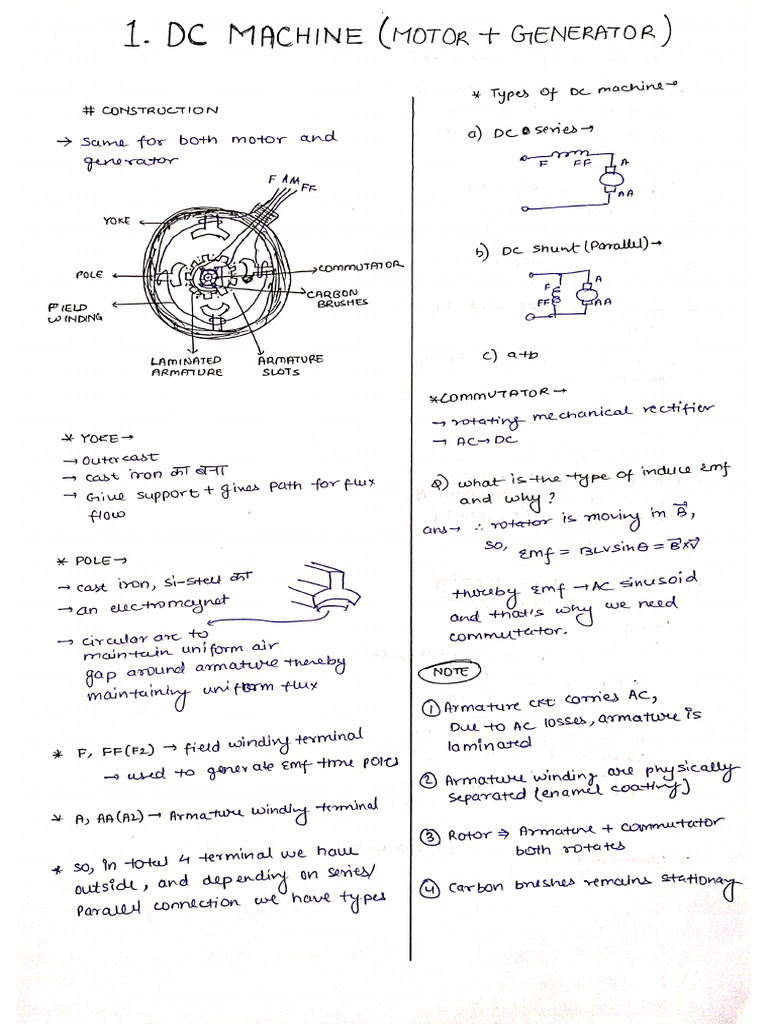 1. DC MACHINE (MOTOR + GENERATOR)
# CONSTRUCTION
→ Same for both motor and
generator
F A M
FF
YOKE
POLE
FIELD
WINDING
COMMUTATOR
CARBON
BRUSHES
LAMINATED
ARMATURE
ARMATURE
SLOTS
* YOKE →
→ Outercast
→ cast iron का बना
→ Give support + gives path for flux
flow
* POLE →
→ cast iron, Si-steel का
→ an electromagnet
→ circular arc to
maintain uniform air
gap around armature thereby
maintaining uniform flux
* F, FF(F2) → field winding terminal
→ used to generate Emf thro poles
* A, AA(A2) → Armature winding terminal
* so, in total 4 terminal we have
outside, and depending on series/
Parallel connection we have types
* Types of DC machine →
a) DC series →
F FF A
AA
b) DC shunt (Parallel) →
F
FF
A
AA
c) a+b
* COMMUTATOR →
→ rotating mechanical rectifier
→ AC → DC
Q) what is the type of induce Emf
and why?
ans → ∴ rotator is moving in B⃗,
so, Emf = BLVsinθ = B⃗×V⃗
thereby Emf → AC sinusoid
and that's why we need
commutator.
NOTE
① Armature ckt carries AC,
Due to AC losses, armature is
laminated
② Armature winding are physically
separated (enamel coating)
③ Rotor ⇒ Armature + commutator
both rotates
④ Carbon brushes remains stationary